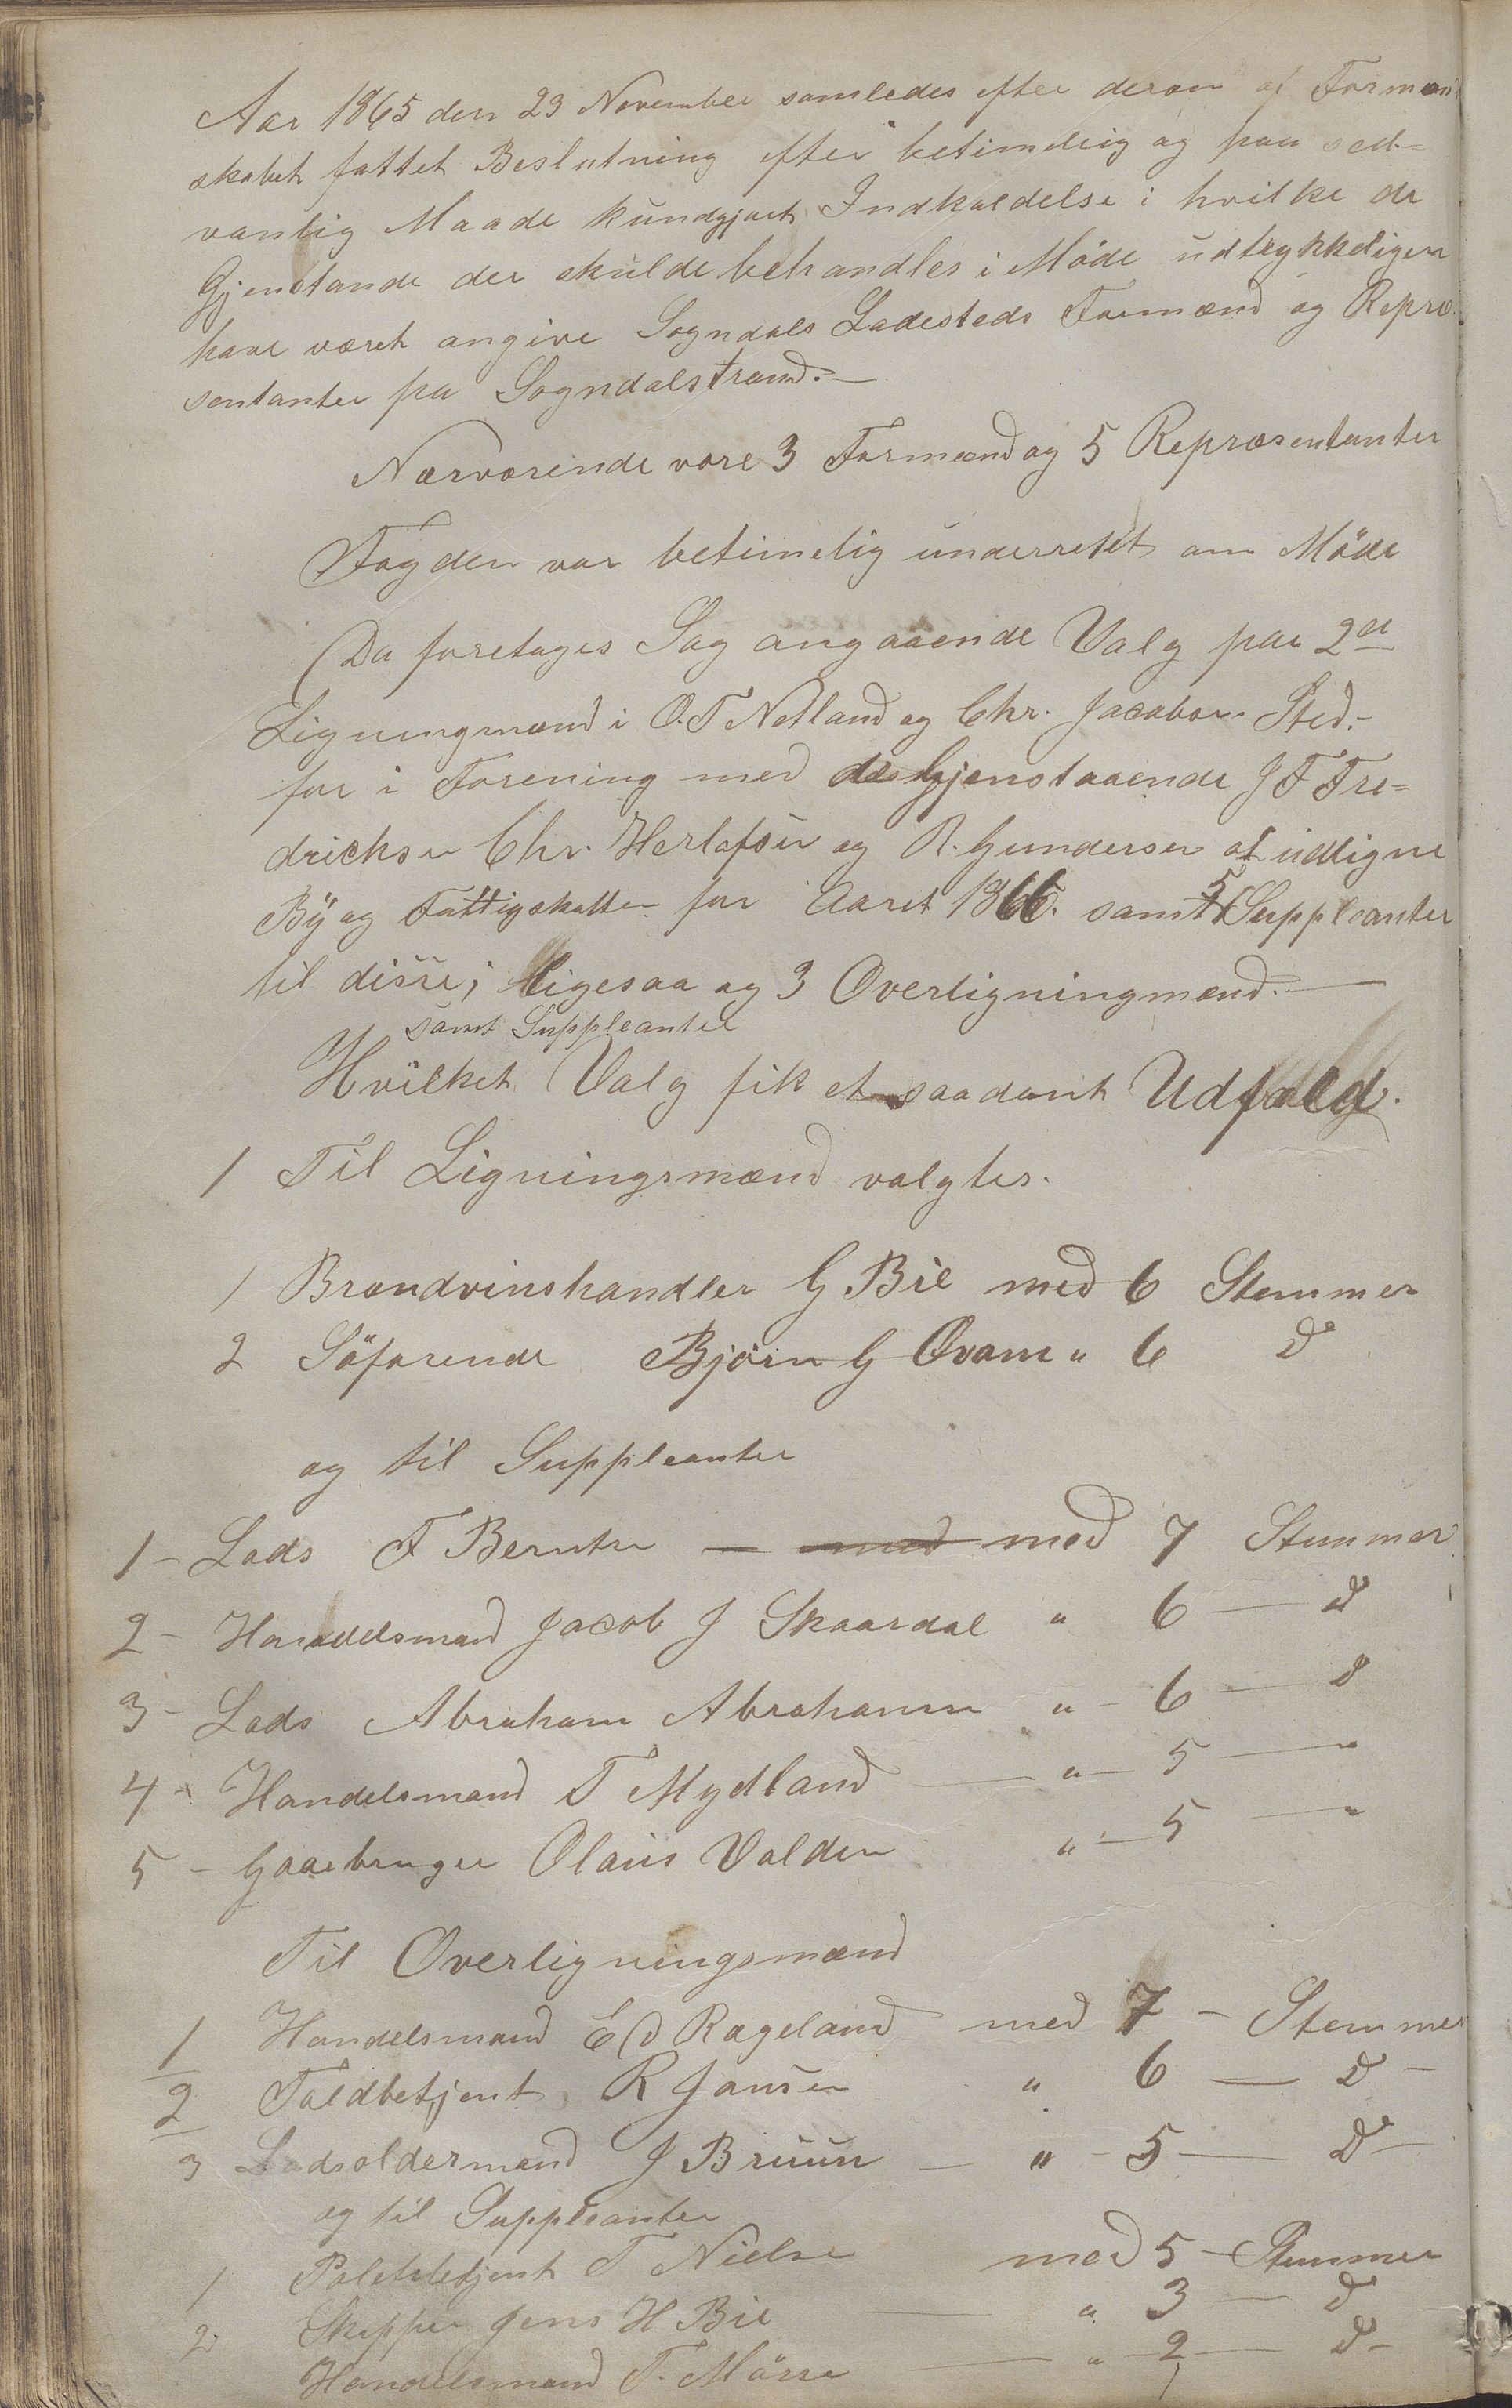 Aar 1865 den 23 November samledes efter derom af Formand
skabet fattet Beslutning efter betimelig og paa sed-
vanlig Maade kundgjort Indkaldelse i hvilke de
Gjenstande der skulde behandles i Möde udtrykkeligen
have været angive Sogndals Ladesteds Formænd og Repræ
sentanter pa Sogndalstrand.—
Nærværende vare 3 Formænd og 5 Repræsentanter
Fogden var betimelig underrettet om Möde
Da foretages Sag angaaende Valg paa 2de
Ligningmænd i O. T Netland og Chr. Jacobsen Sted.-
for i Forening med de Gjenstaaende J F Fre=
dricksen Chr. Herlofsen og R. Gundersen at udligne
By og Fattigskatten for Aaret 1866. samt 5 Suppleanter
til disse; ligesaa og 3 Overligningmænd.—
samt Suppleanter
Hvilket Valg fik et saadant Udfald.
1 Til Ligningsmænd valgtes.
1 Brændvinshandler G Bie med 6 Stemmer
2 Söfarende Björn G Ovam " 6 Do
og til Suppleanter
1 - Lods F Berntsen — med med 7 Stemmer
2 - Handelsmand Jacob J Skaardal " 6 — Do
3 - Lods Abraham Abrahamsen " - 6 — Do
4 - Handelsmand T Mydland — " — 5 — "
5 - Gaardbruger Olaus Valden " — 5 — "
Til Overligningsmænd
1 Handelsmand E D Rægeland med 7 - Stemmer
2 Toldbetjent R Jansen " 6 — Do -
3 Lodsoldermand J Bruun — " - 5 — Do -
og til Suppleanter
1 Politibetjent T Nielsen med 5 - Stemmer
2 Skipper Jens H Bie — " 3 — Do
Handelsmand T. — " - 2 — Do -